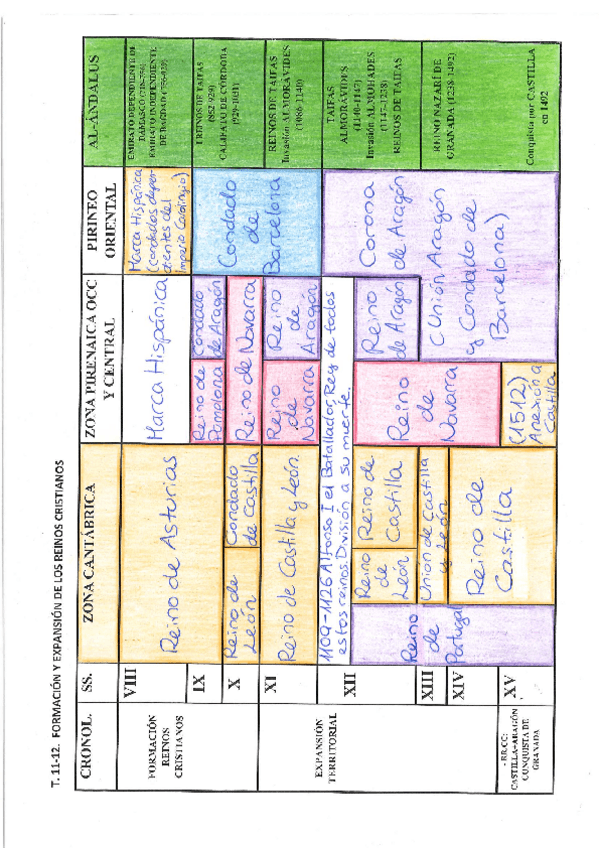 T. 11-12. FORMACIÓN Y EXPANSIÓN DE LOS REINOS CRISTIANOS
CRONOL.
SS.
ZONA CANTÁBRICA
ZONA PIRENAICA OCC
Y CENTRAL
PIRINEO
ORIENTAL
AL-ÁNDALUS
FORMACIÓN
REINOS
CRISTIANOS
VIII
Reino de Asturias
Marca Hispánica
Marca Hispánica
(condados depen-
dientes del
Imperio Carolingio)
EMIRATO DEPENDIENTE DE
DAMASCO
EMIRATO INDEPENDIENTE
DE BAGDAD
IX
Reino de
Pamplona
Condado
de Aragón
Condado
de
Barcelona
I REINOS DE TAIFAS
CALIFATO DE CÓRDOBA
(929-1031)
X
Reino de
León
Condado
de Castilla
Reino de Navarra
EXPANSIÓN
TERRITORIAL
XI
Reino de Castilla y León.
Reino
de
Navarra
Reino
de
Aragón
REINOS DE TAIFAS
Invasión ALMORÁVIDES
(1086-1140)
XII
1109-1126 Alfonso I el Batallador, Rey de todos
estos reinos. División a su muerte.
Reino
de
Portugal
Reino
de
León
Reino de
Castilla
Reino
de
Navarra
Reino
de Aragón
Corona
de Aragón
(Unión Aragón
y Condado de
Barcelona)
TAIFAS
ALMORÁVIDES
(1140-1147)
Invasión ALMOHADES
(1147-1238)
REINOS DE TAIFAS
XIII
Unión de Castilla
y León
REINO NAZARÍ DE
GRANADA (1238-1492)
XIV
Reino de
Castilla
- RR.CC:
CASTILLA+ARAGÓN
CONQUISTA DE
GRANADA
XV
(1512)
Anexión a
Castilla
Conquista por CASTILLA
en 1492